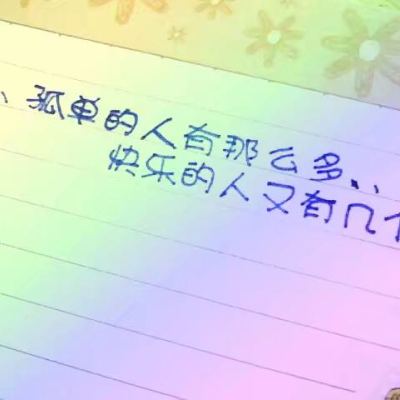 、孤单的人有那么多、、
快乐的人又有几个